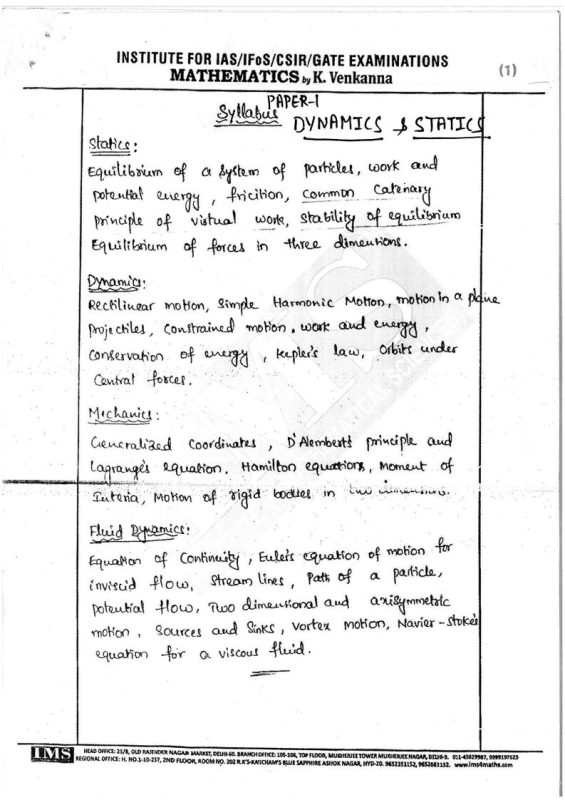 INSTITUTE FOR IAS/IFoS/CSIR/GATE EXAMINATIONS
MATHEMATICS by K. Venkanna
(1)
PAPER-I
Syllabus DYNAMICS & STATICS
Statics:
Equilibrium of a system of particles, work and
potential energy, fricition, common catenary
principle of virtual work, stability of equilibrium
Equilibrium of forces in three dimentions.
Dynamics:
Rectilinear motion, Simple Harmonic Motion, motion in a plane
Projectiles, constrained motion, work and energy,
Conservation of energy, kepler's law, Orbits under
Central forces.
Mechanics:
Generalized Coordinates, D'Alemberts principle and
Lagrange's equation. Hamilton equations, Moment of
Interia, Motion of rigid bodies in two dimensions.
Fluid Dynamics:
Equation of Continuity, Euler's equation of motion for
inviscid flow, Stream lines, Path of a particle,
potential flow, Two dimensional and axisymmetric
motion, Sources and Sinks, Vortex Motion, Navier-Stoke's
equation for a viscous fluid.
IMS
HEAD OFFICE: 25/8, OLD RAJENDER NAGAR MARKET, DELHI-60. BRANCH OFFICE: 105-106, TOP FLOOR, MUKHERJEE TOWER MUKHERJEE NAGAR, DELHI-9. 011-45629987, 9999197625
REGIONAL OFFICE: H. NO.1-10-237, 2ND FLOOR, ROOM NO. 202 R.K'S-KANCHAM'S BLUE SAPPHIRE ASHOK NAGAR, HYD-20. 9652351152, 9652661152. www.ims4maths.com